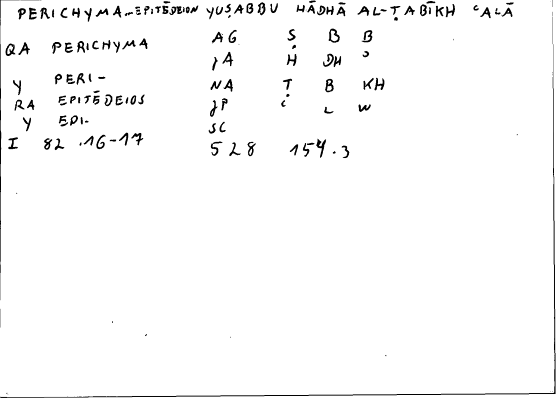 PERICHYMA...EPITĒDEION YUṢABBU HĀDHĀ AL-ṬABĪKH ʿALĀ
QA PERICHYMA AG Ṣ B B
JA H DH ʾ
Y PERI- NA Ṭ B KH
RA EPITĒDEIOS JP ʿ L W
Y EPI- SC
I 82 .16-17 528 154.3